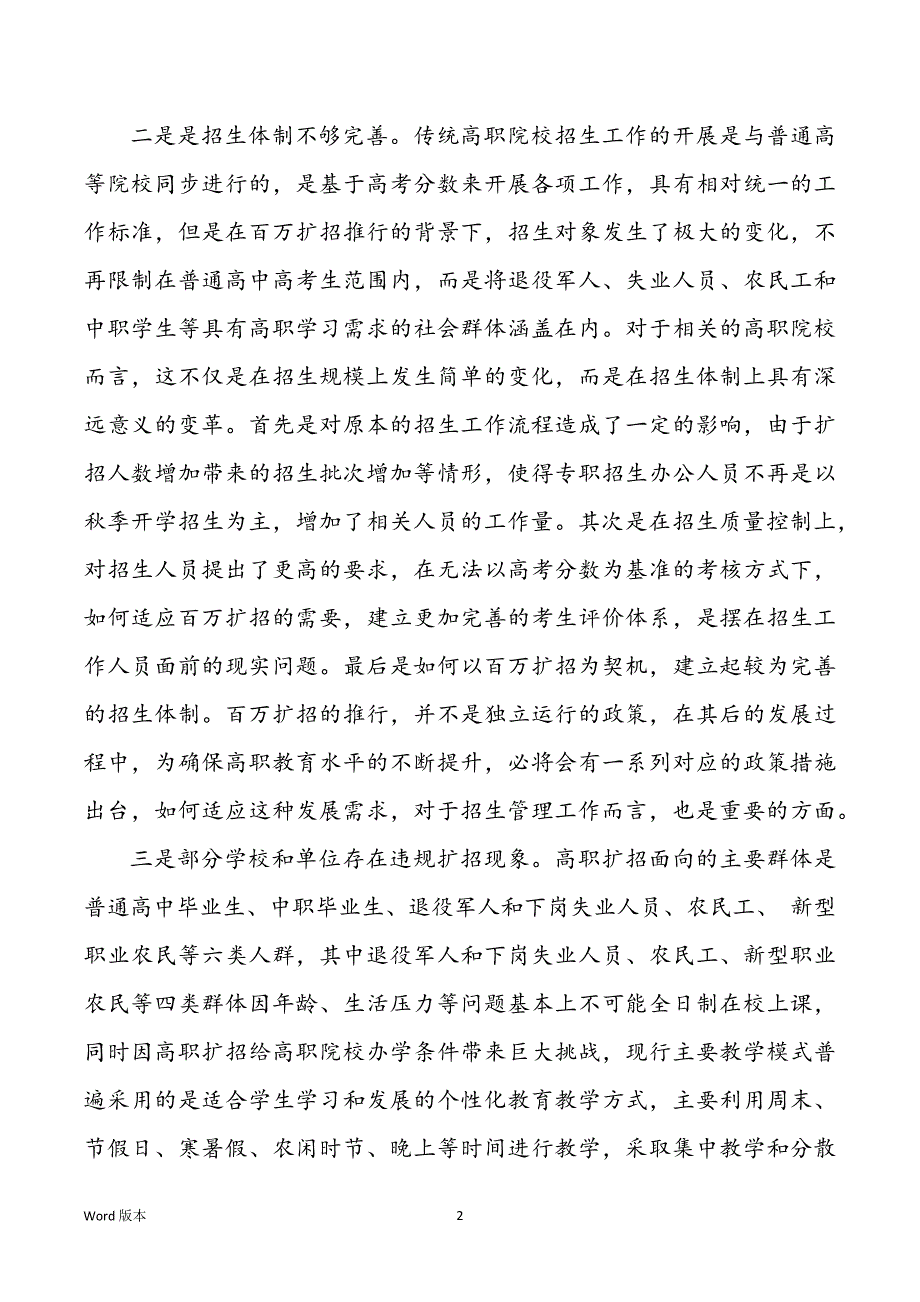 二是是招生体制不够完善。传统高职院校招生工作的开展是与普通高
等院校同步进行的，是基于高考分数来开展各项工作，具有相对统一的工
作标准，但是在百万扩招推行的背景下，招生对象发生了极大的变化，不
再限制在普通高中高考生范围内，而是将退役军人、失业人员、农民工和
中职学生等具有高职学习需求的社会群体涵盖在内。对于相关的高职院校
而言，这不仅是在招生规模上发生简单的变化，而是在招生体制上具有深
远意义的变革。首先是对原本的招生工作流程造成了一定的影响，由于扩
招人数增加带来的招生批次增加等情形，使得专职招生办公人员不再是以
秋季开学招生为主，增加了相关人员的工作量。其次是在招生质量控制上，
对招生人员提出了更高的要求，在无法以高考分数为基准的考核方式下，
如何适应百万扩招的需要，建立更加完善的考生评价体系，是摆在招生工
作人员面前的现实问题。最后是如何以百万扩招为契机，建立起较为完善
的招生体制。百万扩招的推行，并不是独立运行的政策，在其后的发展过
程中，为确保高职教育水平的不断提升，必将会有一系列对应的政策措施
出台，如何适应这种发展需求，对于招生管理工作而言，也是重要的方面。
三是部分学校和单位存在违规扩招现象。高职扩招面向的主要群体是
普通高中毕业生、中职毕业生、退役军人和下岗失业人员、农民工、 新型
职业农民等六类人群，其中退役军人和下岗失业人员、农民工、新型职业
农民等四类群体因年龄、生活压力等问题基本上不可能全日制在校上课，
同时因高职扩招给高职院校办学条件带来巨大挑战，现行主要教学模式普
遍采用的是适合学生学习和发展的个性化教育教学方式，主要利用周末、
节假日、寒暑假、农闲时节、晚上等时间进行教学，采取集中教学和分散
Word 版本 2